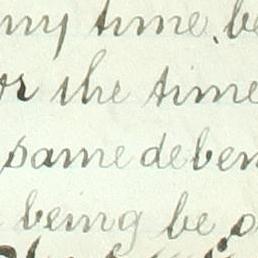 my time, be
or the time
same deben
being be o